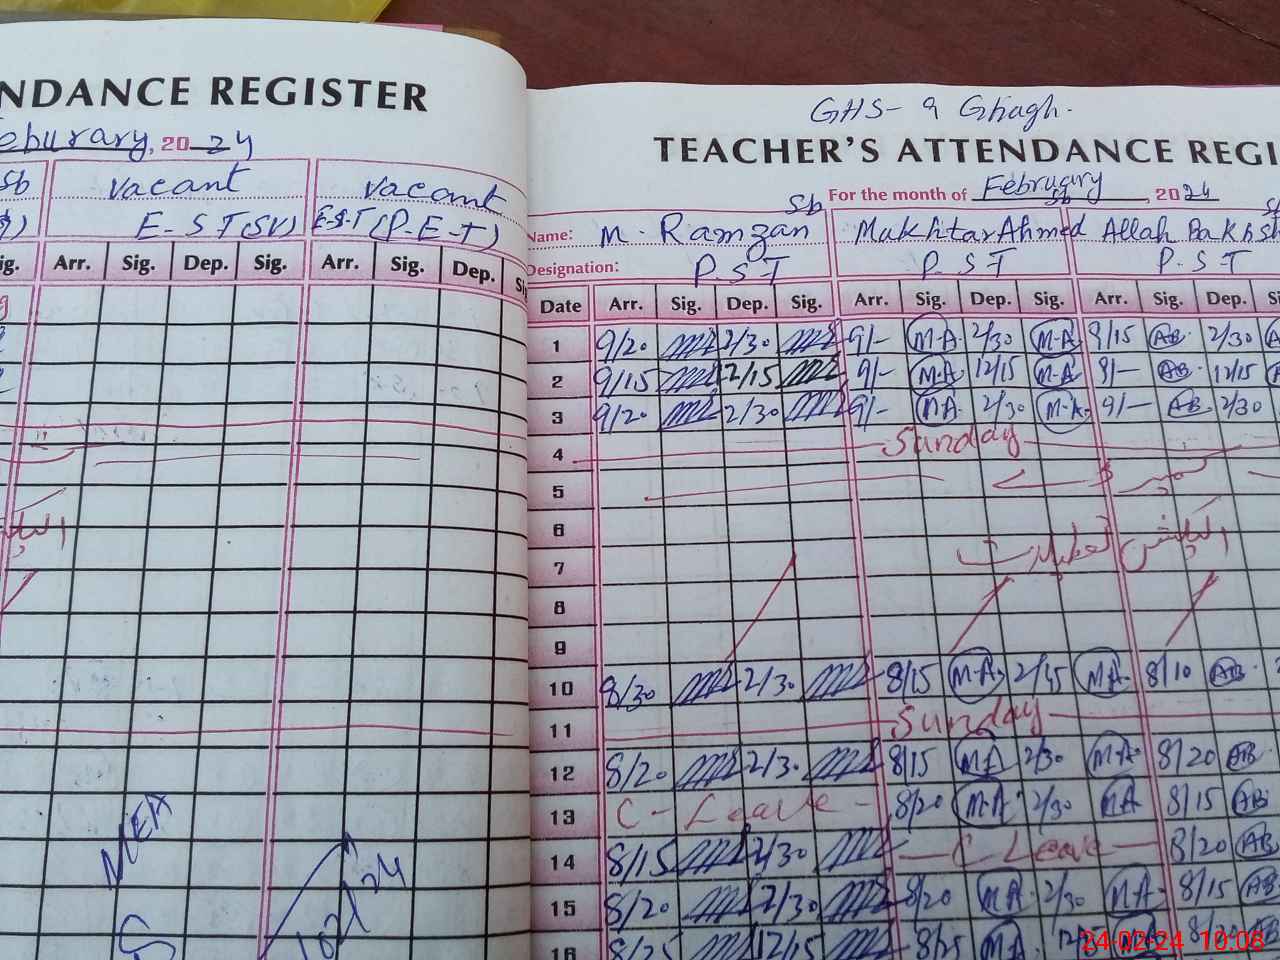 NDANCE REGISTER
Feburary, 2024
Sb vacant vacant
E-S T (SV) E-S-T (P-E-T)
ig. Arr. Sig. Dep. Sig. Arr. Sig. Dep. Si
MEA
GHS- 9 Ghagh.
TEACHER'S ATTENDANCE REGI
For the month of February, 2024
Sb Sb Sb
Name: M. Ramzan Mukhtar Ahmed Allah Bakhsh
Designation: P.S.T P.S.T P.S.T
Date Arr. Sig. Dep. Sig. Arr. Sig. Dep. Sig. Arr. Sig. Dep. S
1 9/20 2/30 9/- M-A 2/30 M-A 8/15 AB 2/30
2 9/15 12/15 9/- M-A 12/15 M-A 9/- AB 12/15
3 9/20 2/30 9/- MA 2/30 M-A 9/- AB 2/30
4 Sunday
5
6
الیکشن تعطیلات
7
8
9
10 8/30 2/30 8/15 M-A MA 8/10 AB
11 Sunday
12 8/20 2/30 8/15 MA 2/30 M-A 8/20 AB
13 C-Leave- 8/20 M-A 2/30 MA 8/15 AB
14 8/15 2/30 -C Leave- 8/20 AB
15 8/20 2/30 8/20 MA 2/30 MA 8/15 AB
16 8/25 12/15 8/25 MA
24-02-24 10:08